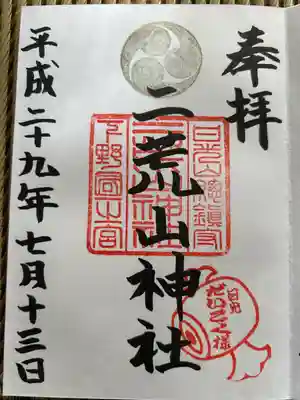 奉拝
日光山總鎮守
二荒山神社
下野國一之宮
日光
だいこく様
平成二十九年七月十三日